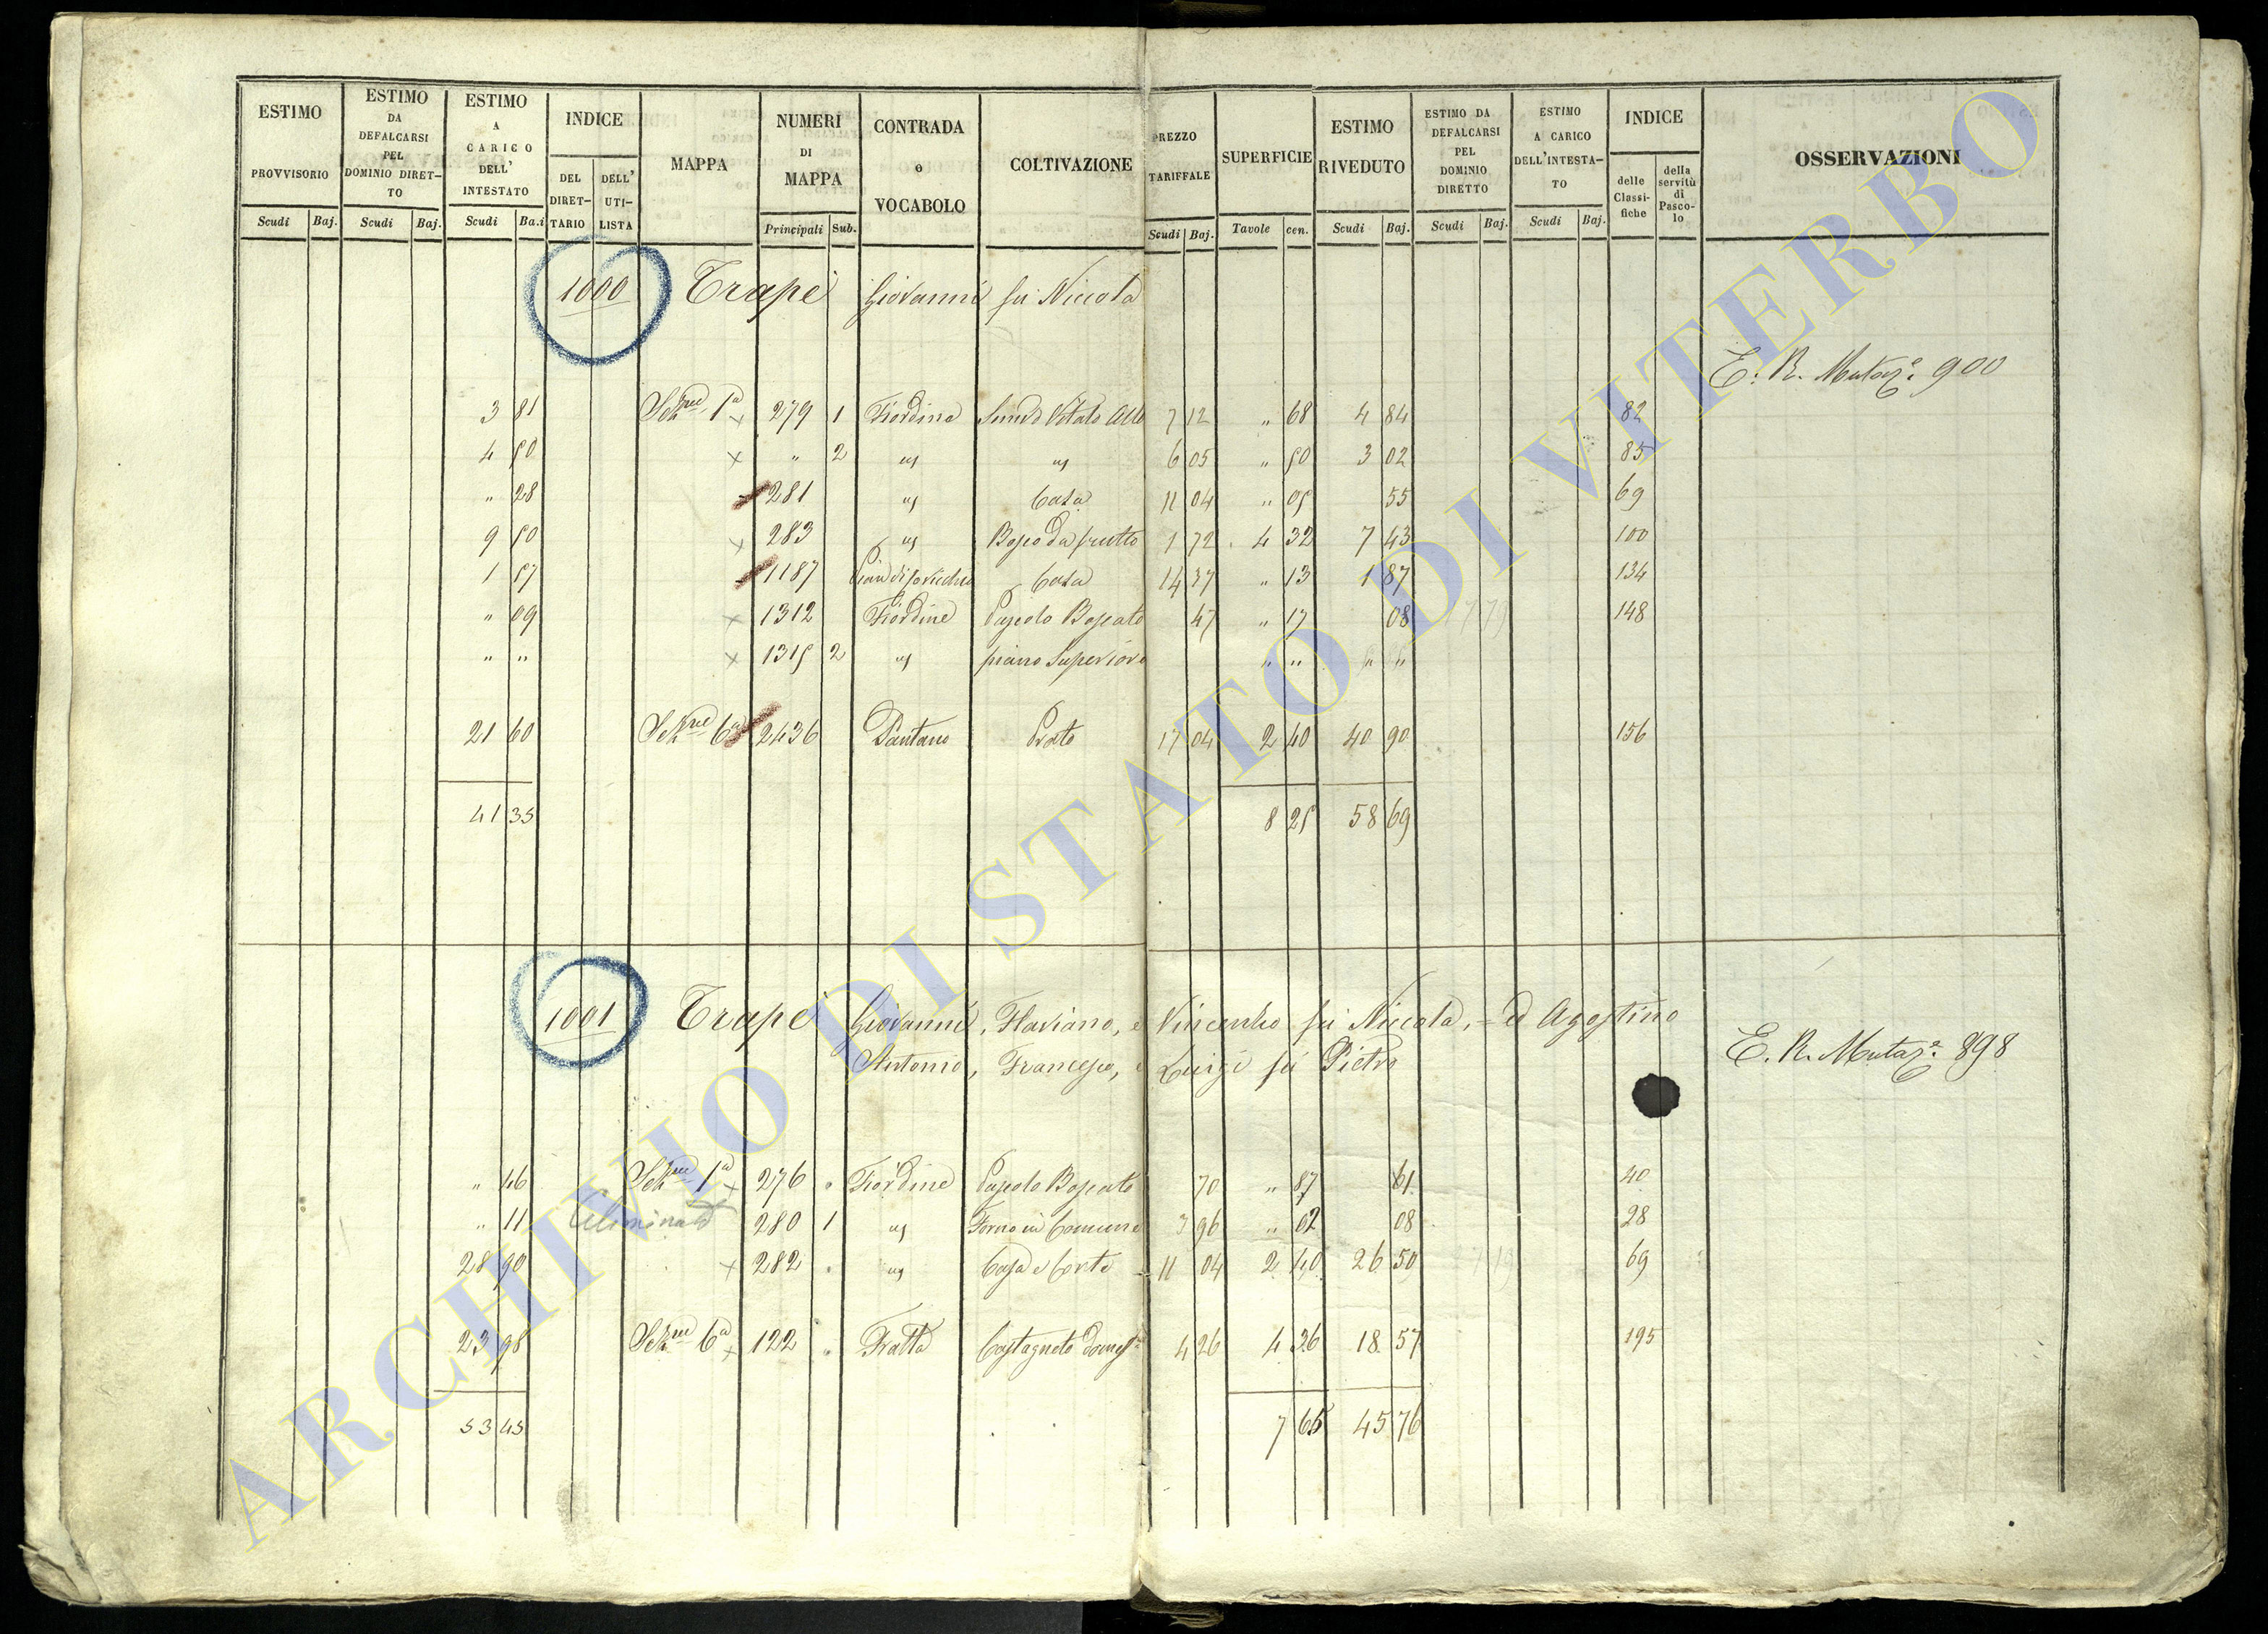 ESTIMO PROVVISORIO | ESTIMO DA DEFALCARSI PEL DOMINIO DIRET-TO | ESTIMO A CARICO DELL' INTESTATO | INDICE | MAPPA | NUMERI DI MAPPA | CONTRADA o VOCABOLO | COLTIVAZIONE | PREZZO TARIFFALE | SUPERFICIE | ESTIMO RIVEDUTO | ESTIMO DA DEFALCARSI PEL DOMINIO DIRETTO | ESTIMO A CARICO DELL'INTESTA-TO | INDICE | OSSERVAZIONI
DEL DIRET-TARIO | DELL' UTI-LISTA | delle Classi-fiche | della servitù di Pasco-lo
Scudi | Baj. | Scudi | Baj. | Scudi | Ba.i | Principali | Sub. | Scudi | Baj. | Tavole | cen. | Scudi | Baj. | Scudi | Baj. | Scudi | Baj.
1000 Trapè Giovanni fu Niccola
E. R. Mutaz.e 900
3 81 Sez.ne 1a 279 1 Fiordine 7 12 " 68 4 84 82
4 50 " 2 " " 6 05 " 50 3 02 85
" 28 281 " Casa 11 04 " 05 55 69
9 50 283 " Bosco da frutto 1 72 4 32 7 43 100
1 57 1187 Casa 14 37 " 13 1 87 134
" 09 1312 Fiordine Pascolo Boscato 47 " 17 08 148
" " 1315 2 " piano Superiore " " " "
21 60 Sez.ne 6a 2436 Pantano Prato 17 04 2 40 40 90 156
41 35 8 25 58 69
1001 Trapè Giovanni, Flaviano, e Vincenzo fu Niccola, = ed Agostino
Antonio, Francesco, e Luigi fu Pietro
E. R. Mutaz.e 898
" 46 Sez.ne 1a 276 Fiordine Pascolo Boscato 70 " 87 61 40
" 11 Eliminato 280 1 " Forno in Comune 3 96 " 02 08 28
28 90 282 " Casa e Corte 11 04 2 40 26 50 69
23 98 Sez.ne 6a 122 Fratta Castagneto Domest.o 4 26 4 36 18 57 195
53 45 7 65 45 76
ARCHIVIO DI STATO DI VITERBO